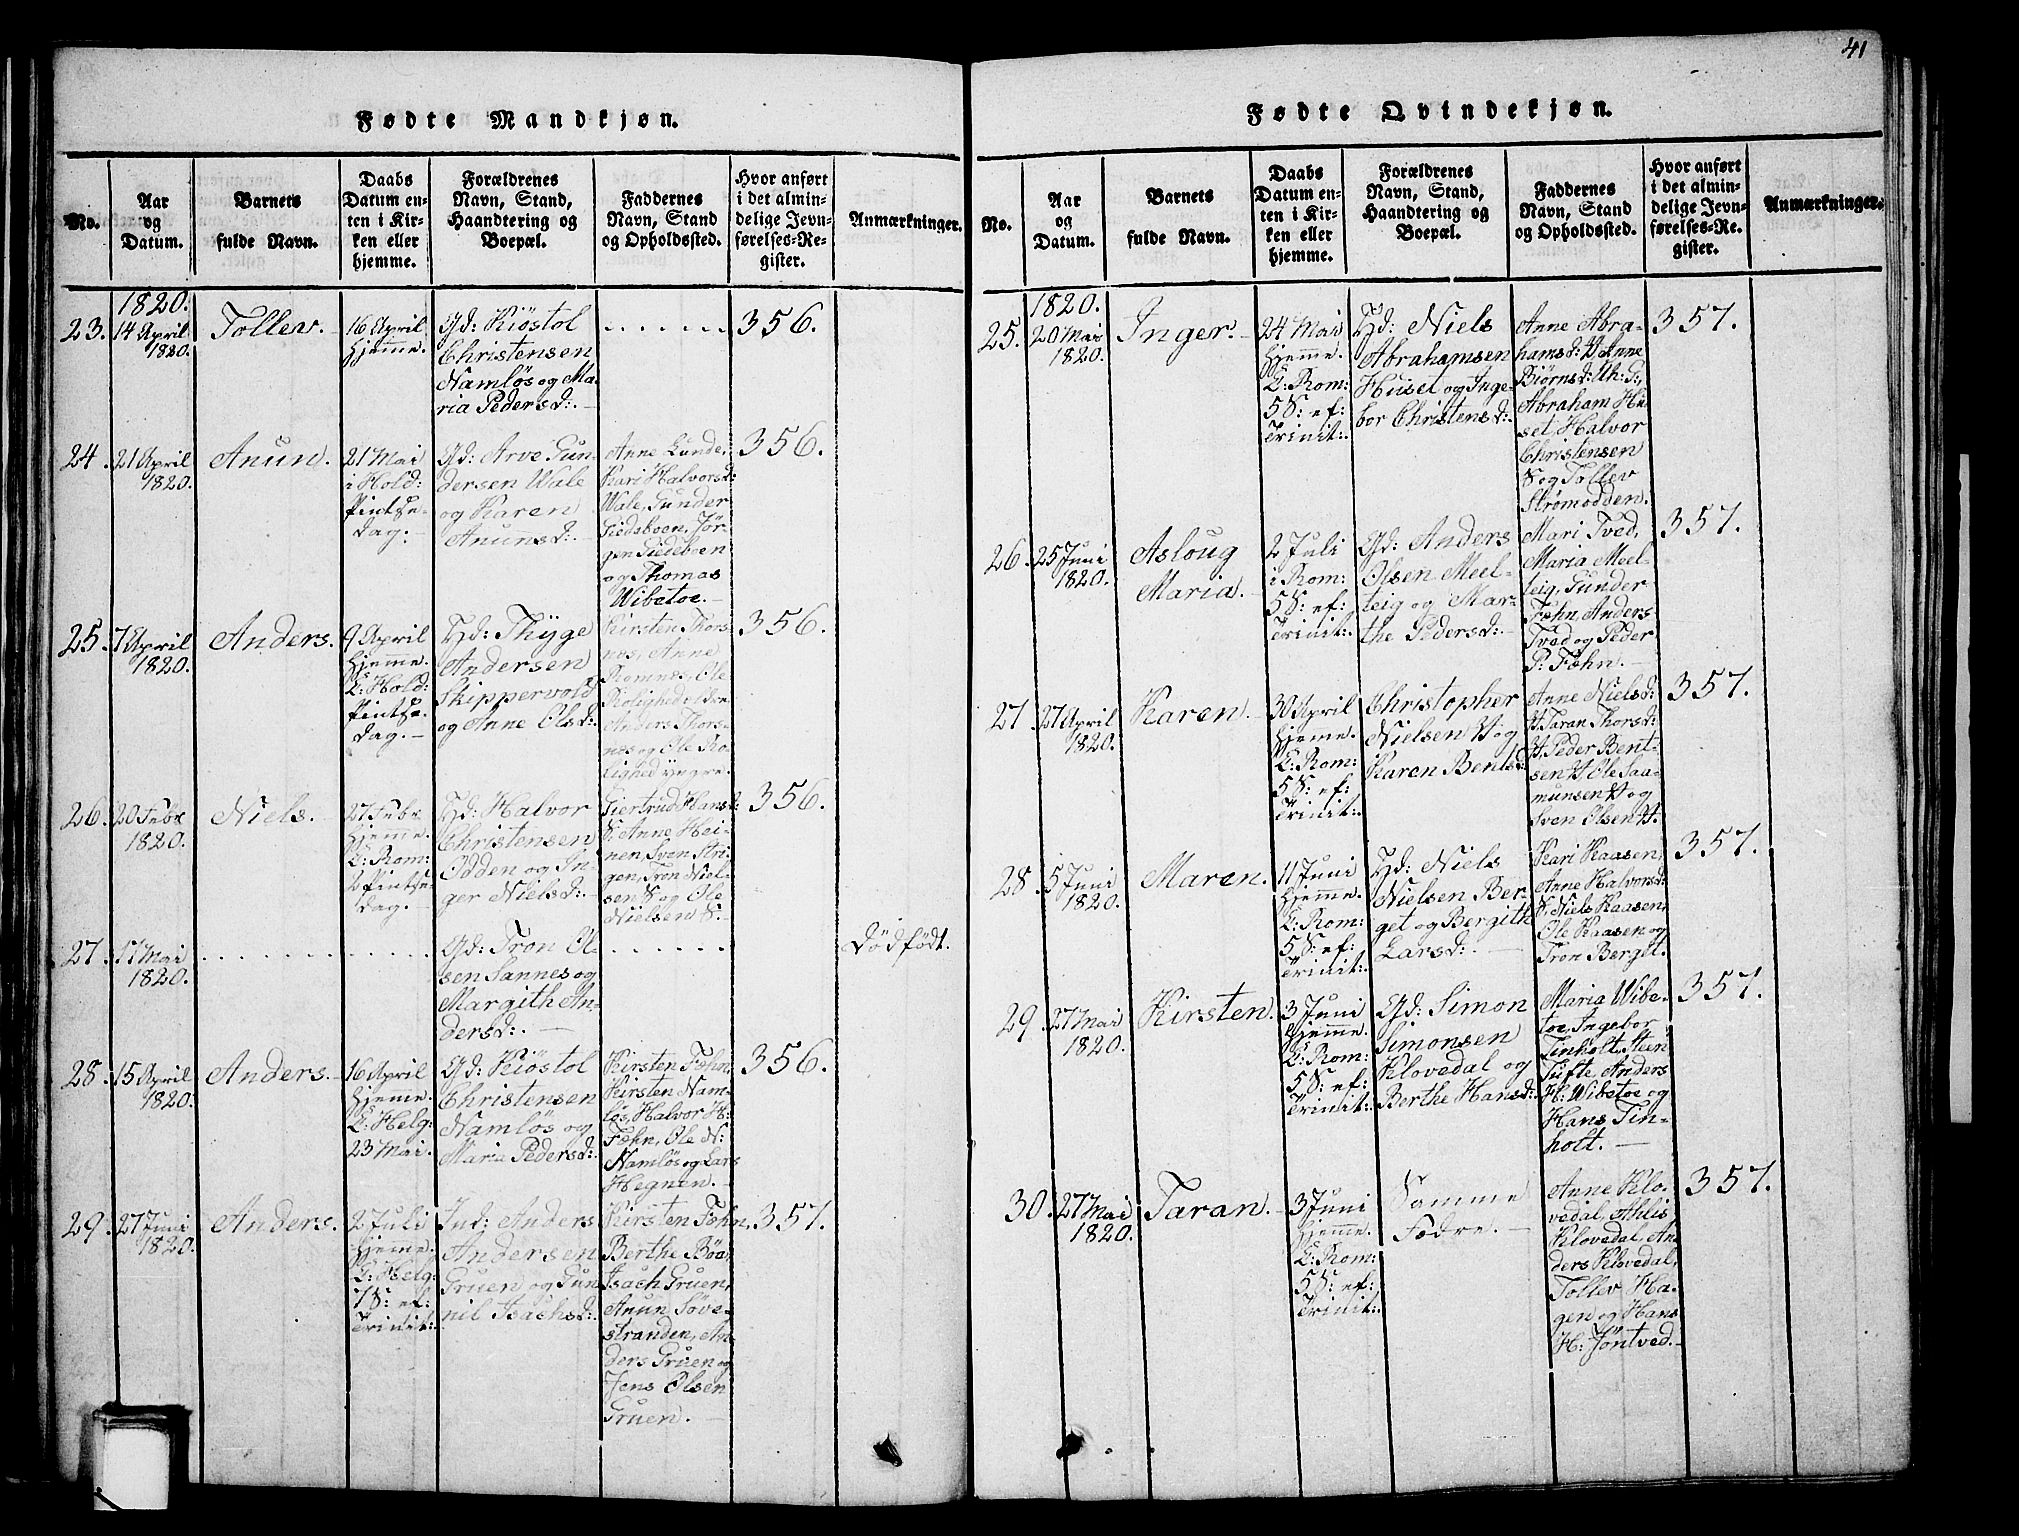 41
Fødte Mandkjøn.
No.
Aar
og
Datum.
Barnets
fulde Navn.
Daabs
Datum en-
ten i Kir-
ken eller
hjemme.
Forældrenes
Navn, Stand,
Haandtering og
Boepæl.
Faddernes
Navn, Stand
og Opholdssted.
Hvor anført
i det almin-
delige Jevn-
førelses-Re-
gister.
Anmærkninger.
1820.
23.
14 April
1820.
Tollev.
16 April
hjemme.
Gd: Kiöstol
Christensen
Namlös og Ma-
ria Pedersd:
356.
24.
21 April
1820.
Anun.
21 Mai
i Hold:
Pintse-
dag.
Gd: Arve Gun-
dersen Wale
og Karen
Anunsd:
Anne Lunde,
Kari Halvorsd:
Wale, Gunder
Tiedsboen, Jör-
gen Tiedsboen
og Thomas
Wibetoe.
356.
25.
7 April
1820.
Anders.
9 April
hjemme.
K: Hold:
Pintse-
dag.
Hd: Thÿge
Andersen
Skippervold
og Anne Olsd:
Kirsten Thors-
nes, Anne
Romnes, Ole
Rolighed elden
Anders Thors-
nes og Ole Ro-
lighed yngre.
356.
26.
20 Febr
1820.
Niels.
27 Febr
hjemme.
K: Rom:
2 Pintse-
dag.
Hd: Halvor
Christensen
Odden og In-
ger Nielsd:
Giertrud Hansd:
S: Anne Hei-
nen, Sven Stri-
gen, Tron Niel-
sen S: og Ole
Nielsen S:
356.
27.
17 Mai
1820.
Gd: Tron Ol-
sen Sannes og
Margith An-
dersd:
Dödfödt.
28.
15 April
1820.
Anders.
16 April
hjemme.
K: Helg:
23 Mai.
Gd: Kiöstol
Christensen
Namlös og
Maria Pedersd:
Kirsten Fæhn,
Kirsten Nam-
lös, Halvor H:
Fæhn, Ole N:
Namlös og Lars
Hegnen.
356.
29.
27 Juni
1820.
Anders.
2 Juli
hjemme.
K: Helg:
7 S: ef:
Trinit:
Ind: Anders
Andersen
Gruen og Gun-
nil Isachsd:
Kirsten Fæhn,
Berthe Böa,
Isach Gruen,
Anun Söve-
stranden, An-
ders Gruen og
Jens Olsen
Gruen.
357.
Fødte Qvindekjøn.
No.
Aar
og
Datum.
Barnets
fulde Navn.
Daabs
Datum en-
ten i Kir-
ken eller
hjemme.
Forældrenes
Navn, Stand,
Haandtering og
Boepæl.
Faddernes
Navn, Stand
og Opholdssted.
Hvor anført
i det almin-
delige Jevn-
førelses-Re-
gister.
Anmærkninger.
1820.
25.
20 Mai
1820.
Inger.
24 Mai
hjemme.
K: Rom:
5 S: ef:
Trinit:
Hd: Niels
Abrahamsen
Huset og Inge-
bor Christensd:
Anne Abra-
hamsd: Anne
Biörnsd: Uh: G:
Abraham Hu-
set, Halvor
Christensen
S og Tollev
Strømodden.
357.
26.
25 Juni
1820.
Asloug
Maria.
2 Juli
i Rom:
5 S: ef:
Trinit:
Gd: Anders
Olsen Meel-
teig og Mar-
the Pedersd:
Mari Tved,
Maria Meel-
teig, Gunder
Fæhn, Anders
Tved og Peder
P: Fæhn.
357.
27.
27 April
1820.
Karen.
30 April
hjemme.
K: Rom:
5 S: ef:
Trinit:
Christopher
Nielsen og
Karen Bentsd:
Anne Nielsd:
Taran Thorsd:
Peder Bent-
sen Ole Saa-
munsen og
Sven Olsen
357.
28.
5 Juni
1820.
Maren.
11 Juni
hjemme.
K: Rom:
5 S: ef:
Trinit:
Hd: Niels
Nielsen Ber-
get og Bergith
Larsd:
Kari Kaasen,
Anne Halvorsd:
S: Niels Kaasen,
Ole Kaasen og
Tron Berget.
357.
29.
27 Mai
1820.
Kirsten.
3 Juni
hjemme.
K: Rom:
5 S: ef:
Trinit:
Gd: Simon
Simonsen
Klovedal og
Berthe Hansd:
Maria Wibe-
toe, Ingebor
Tinholt, Steen
Tufte, Anders
H: Wibetoe og
Hans Tin-
holt.
357.
30.
27 Mai
1820.
Taran.
3 Juni
hjemme.
K: Rom:
5 S: ef:
Trinit:
Samme
Fædre.
Anne Klo-
vedal, Ahlis
Klovedal, An-
ders Klovedal,
Tollev Ha-
gen og Hans
H: Jöntved.
357.